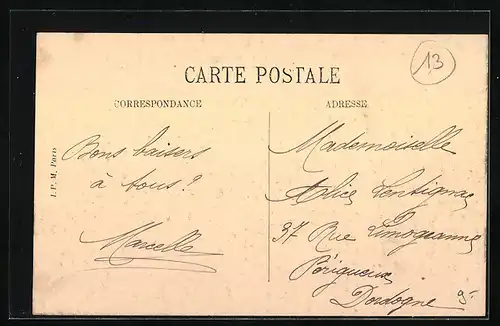 13
CARTE POSTALE
CORRESPONDANCE
ADRESSE
Bons baisers
à tous !
Marcelle
Mademoiselle
Alice
37 Rue Limogeanne
Périgueux
Dordogne
I. P. M. Paris